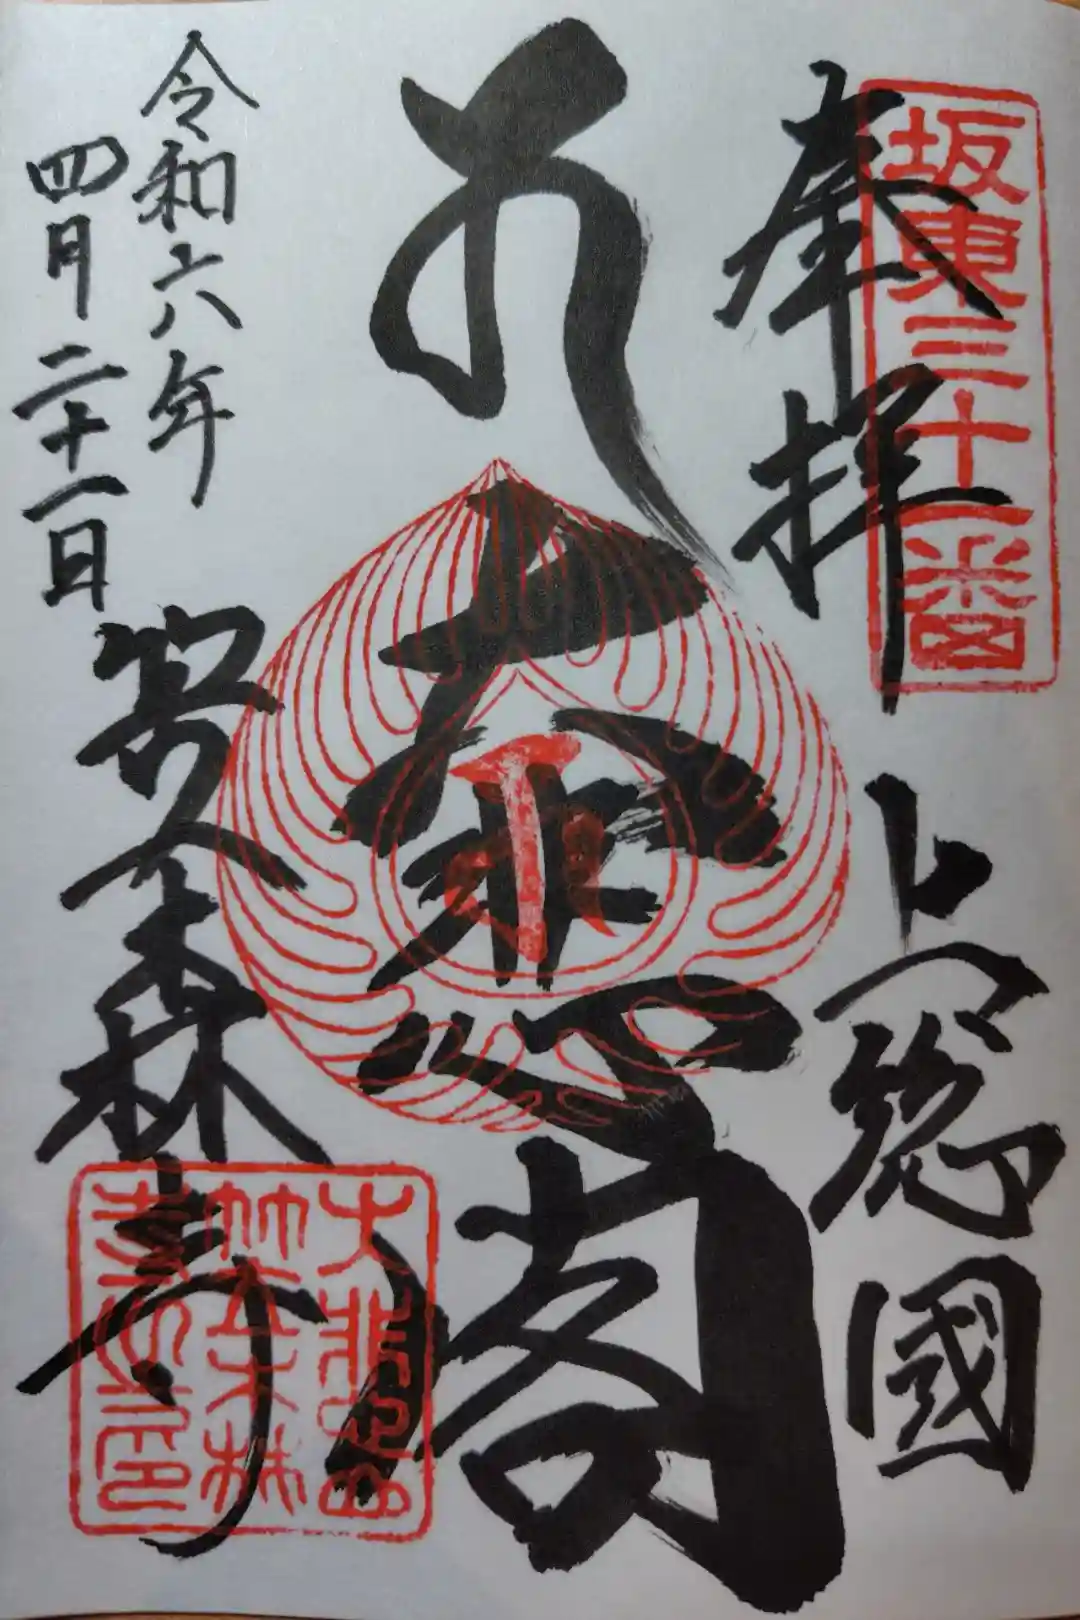 坂東三十一番
奉拝
上総國
大悲閣
令和六年
四月二十一日
笠森寺
大悲山
笠森
寺之印